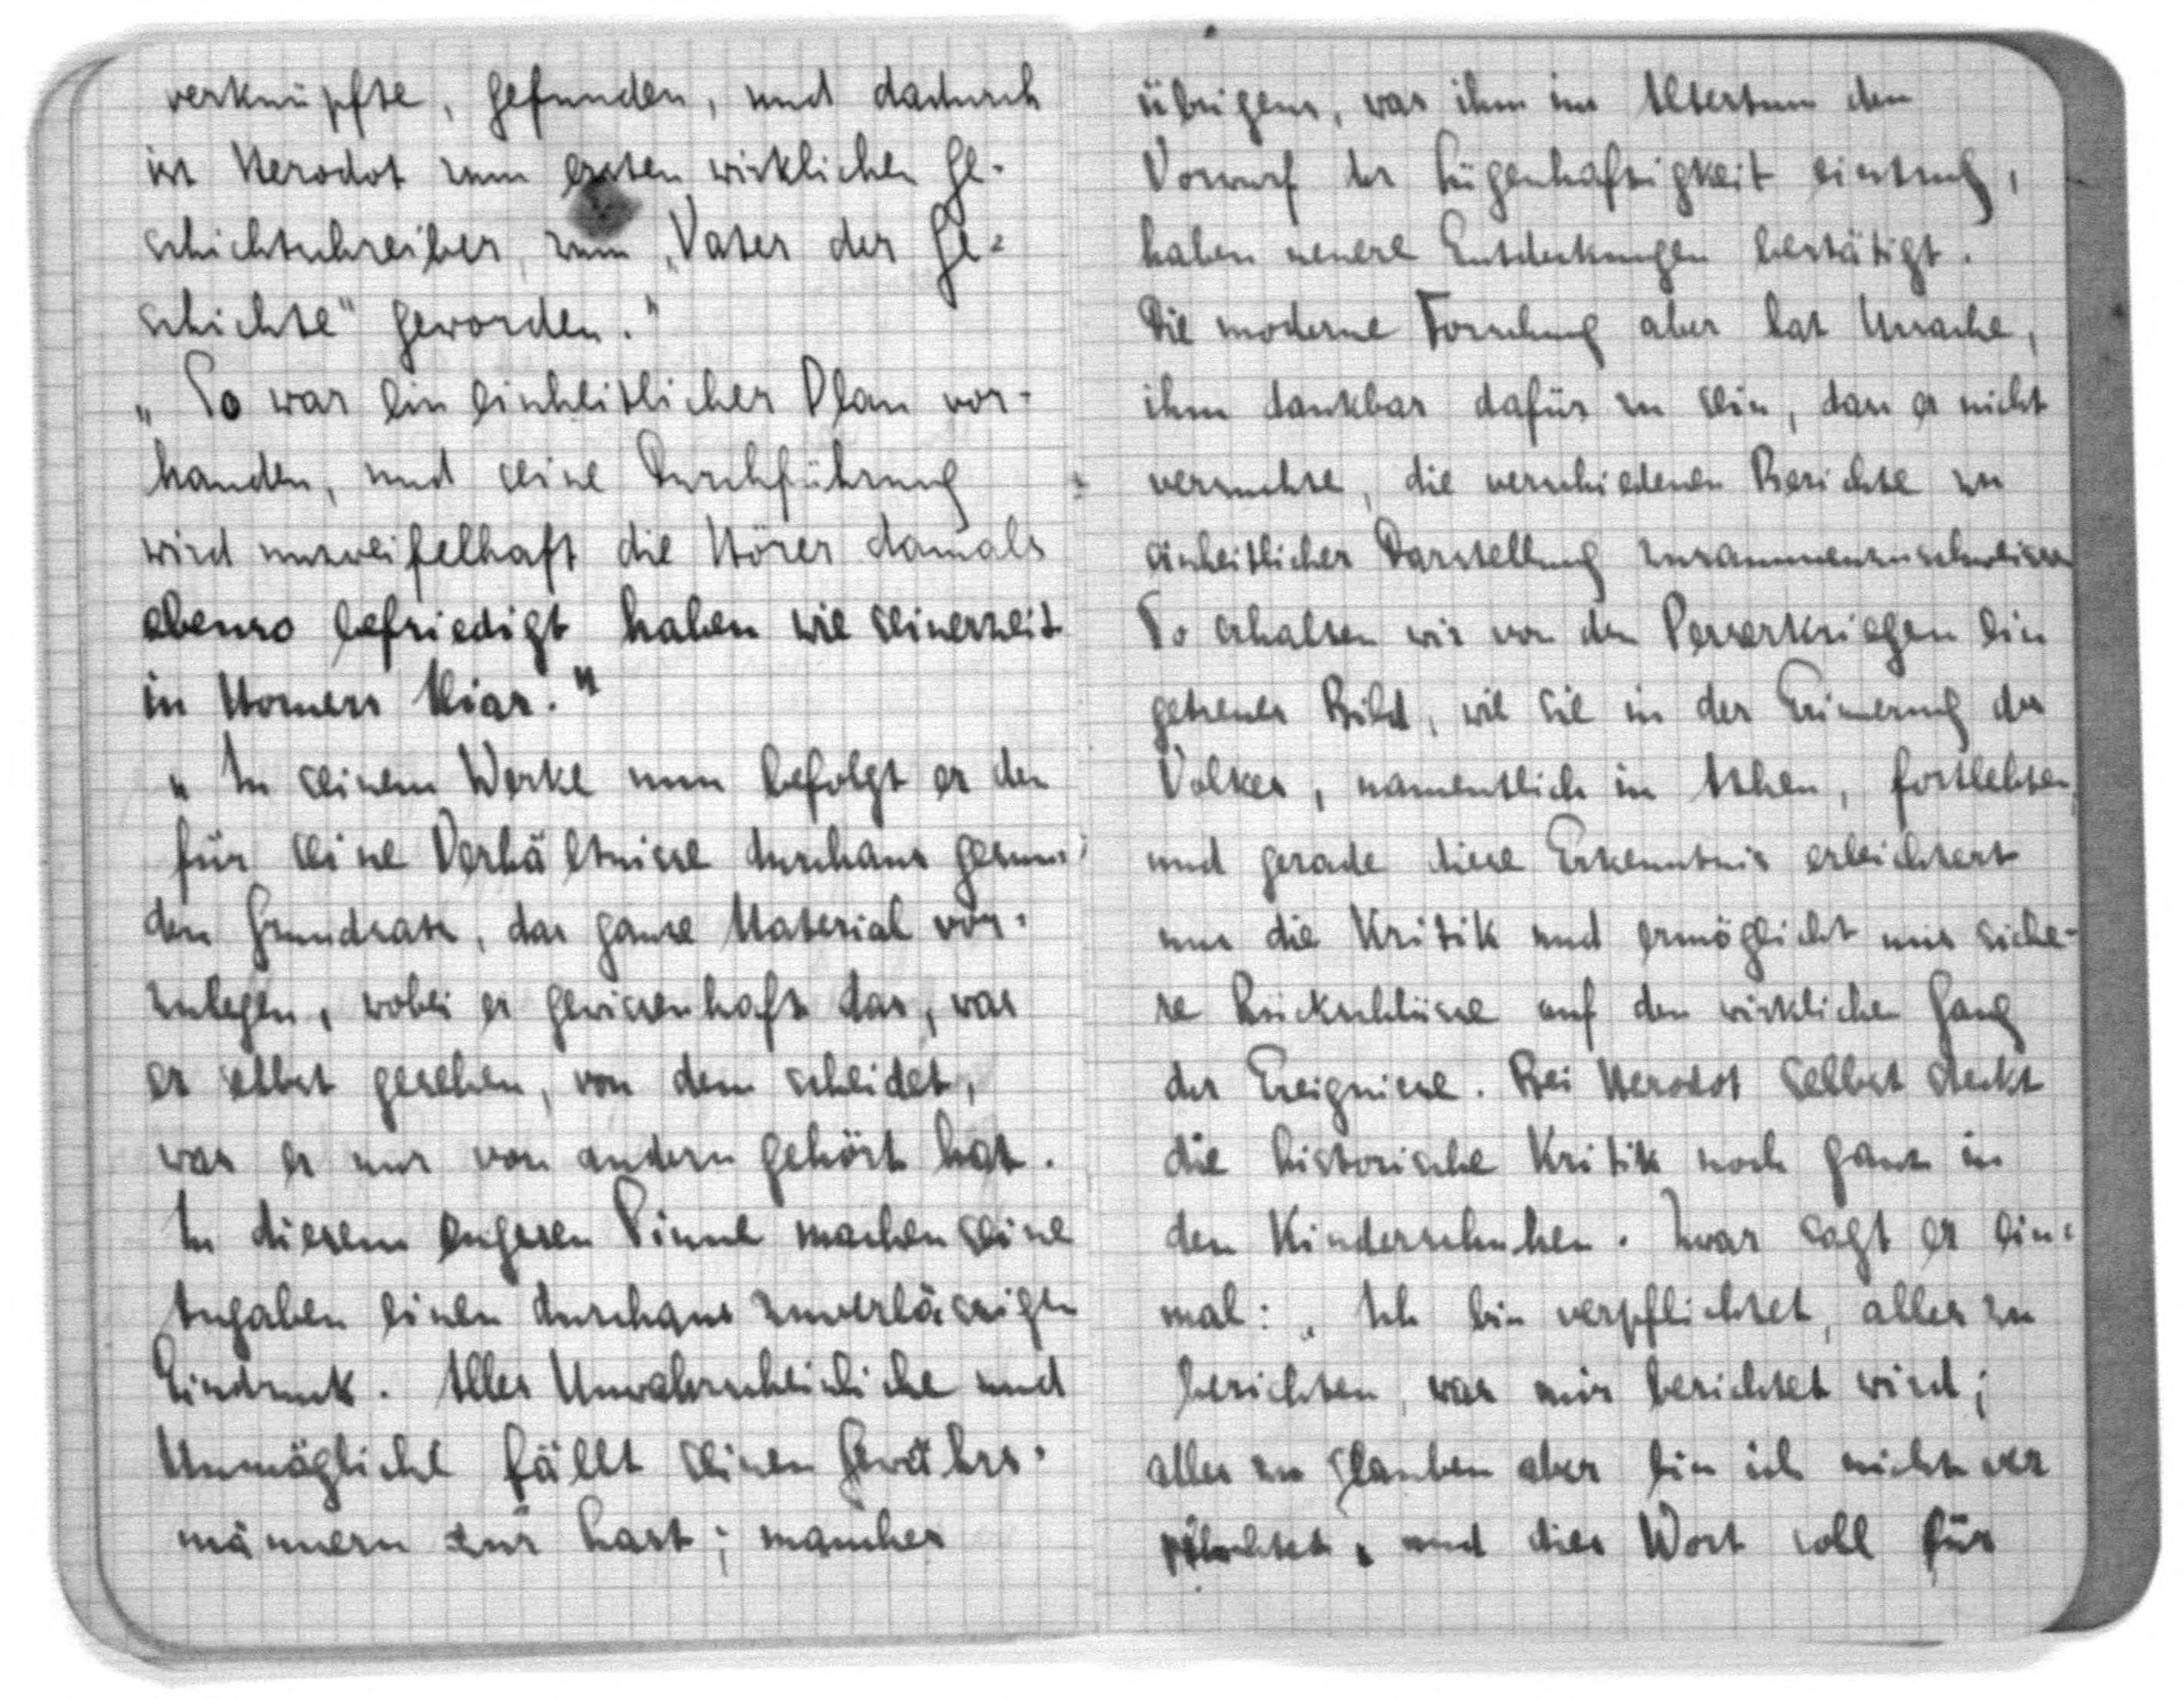 verknüpfte, gefunden, und dadurch
ist Herodot zum ersten wirklichen Ge-
schichtschreiber, zum „Vater der Ge-
schichte" geworden."
„So war ein einheitlicher Plan vor-
handen, und seine Durchführung
wird unzweifelhaft die Hörer damals
ebenso befriedigt haben wie seinerzeit
in Homers Ilias."
„In seinem Werke nun befolgt er den
für seine Verhältnisse durchaus gesun-
den Grundsatz, das ganze Material vor-
zulegen, wobei er gewissenhaft das, was
er selbst gesehen, von dem scheidet,
was er nur von andern gehört hat.
In diesem engeren Sinne machen seine
Angaben einen durchaus zuverlässigen
Eindruck. Alles Unwahrscheinliche und
Unmögliche fällt seinen Gewährs-
männern zur Last; manches
übrigens, was ihm im Altertum den
Vorwurf der Lügenhaftigkeit eintrug,
haben neuere Entdeckungen bestätigt.
Die moderne Forschung aber hat Ursache,
ihm dankbar dafür zu sein, dass er nicht
versuchte, die verschiedenen Berichte zu
einheitlicher Darstellung zusammenzuschweissen
So erhalten wir von den Perserkriegen ein
getreues Bild, wie sie in der Erinnerung des
Volkes, namentlich in Athen, fortlebten,
und gerade diese Erkenntnis erleichtert
uns die Kritik und ermöglicht uns siche-
re Rückschlüsse auf den wirklichen Gang
der Ereignisse. Bei Herodot selbst steckt
die historische Kritik noch ganz in
den Kinderschuhen. Zwar sagt er ein-
mal: „Ich bin verpflichtet, alles zu
berichten, was mir berichtet wird;
alles zu glauben aber bin ich nicht ver
pflichtet, und dies Wort soll für